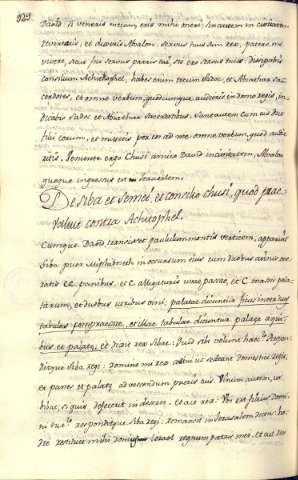 David: Si veneris mecum, eris mihi oneri: si autem in civitatem
revertaris, et dixeris Absalon. servus tuus sum rex, patere me
vivere, sicut fui servus patris tui, sic ero servus tuus: dissipabis
consilium Achitophel, habes enim tecum Sadoc, et Abiathar sa-
cerdotes, et omne verbum, quodcumque audieris in domo regis, in-
dicabis Sadoc et Abiathar sacerdotibus. Sunt autem cum eis duo
filii eorum, et mittetis per eos ad me omne verbum, quod audie
ritis. Veniente ergo Chusi amico David in civitatem, Absalon
quoque ingressus est Jerusalem.
De Siba et Semei, et consilio Chusi, quod prae-
valuit contra Achitophel.
Cumque David transisset paululum montis verticem, apparuit
Siba puer Miphiboseth in occursum eius cum duobus asinis one-
ratis CC. panibus, et C. alligaturis uvae passae, et C. massis pala-
tharum, et duobus utribus vini: palatae dicuntur ficus
tabulas compressae, et illae tabulae dicuntur palate a qui-
bus et palatę, et dixit rex Sibae: Quid sibi volunt haec? Respon-
ditque Siba regi: domine mi rex asini ut sedeant domestici regis,
et panes et palatę ad vescendum pueris tuis. Vinum autem, ut
bibat, si quis defecerit in deserto. Et ait rex: Ubi est filius domi-
ni tui? responditque Siba regi: remansit in Jerusalem dicens: ho-
die restituet mihi domus Israel regnum patris mei. et ait rex